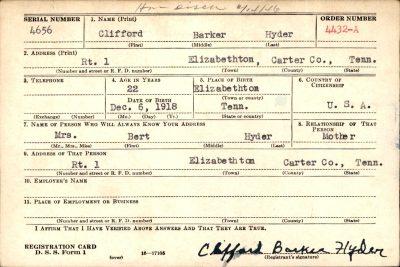 Hon Disch
SERIAL NUMBER 1. NAME (Print) ORDER NUMBER
4656 Clifford Barker Hyder 4432-A
(First) (Middle) (Last)
2. ADDRESS (Print)
Rt. 1 Elizabethton, Carter Co., Tenn.
(Number and street or R. F. D. number) (Town) (County) (State)
3. TELEPHONE 4. AGE IN YEARS 5. PLACE OF BIRTH 6. COUNTRY OF CITIZENSHIP
22 Elizabethton
DATE OF BIRTH (Town or county)
Dec. 6, 1918 Tenn. U. S. A.
(Exchange) (Number) (Mo.) (Day) (Yr.) (State or country)
7. NAME OF PERSON WHO WILL ALWAYS KNOW YOUR ADDRESS 8. RELATIONSHIP OF THAT PERSON
Mrs. Bert Hyder Mother
(Mr., Mrs., Miss) (First) (Middle) (Last)
9. ADDRESS OF THAT PERSON
Rt. 1 Elizabethton Carter Co., Tenn.
(Number and street or R. F. D. number) (Town) (County) (State)
10. EMPLOYER'S NAME
11. PLACE OF EMPLOYMENT OR BUSINESS
(Number and street or R. F. D. number) (Town) (County) (State)
I AFFIRM THAT I HAVE VERIFIED ABOVE ANSWERS AND THAT THEY ARE TRUE.
REGISTRATION CARD
D. S. S. Form 1 (over) 16—17105 Clifford Barker Hyder
(Registrant's signature)